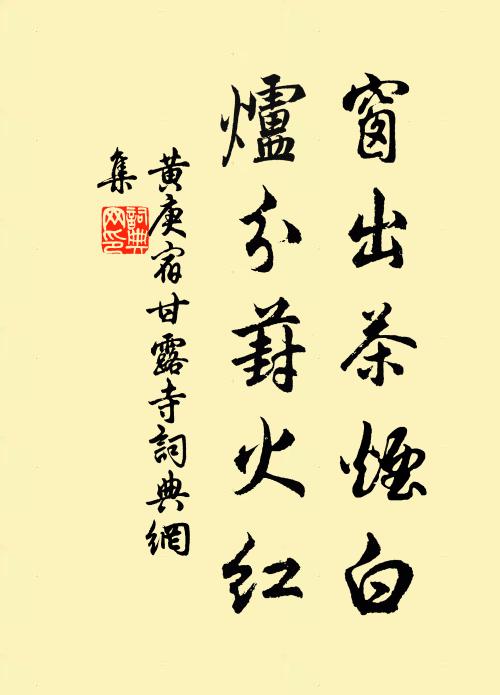 窗出茶煙白
爐分葑火紅
黃庚宿甘露寺詞典網
集
詞典
网印